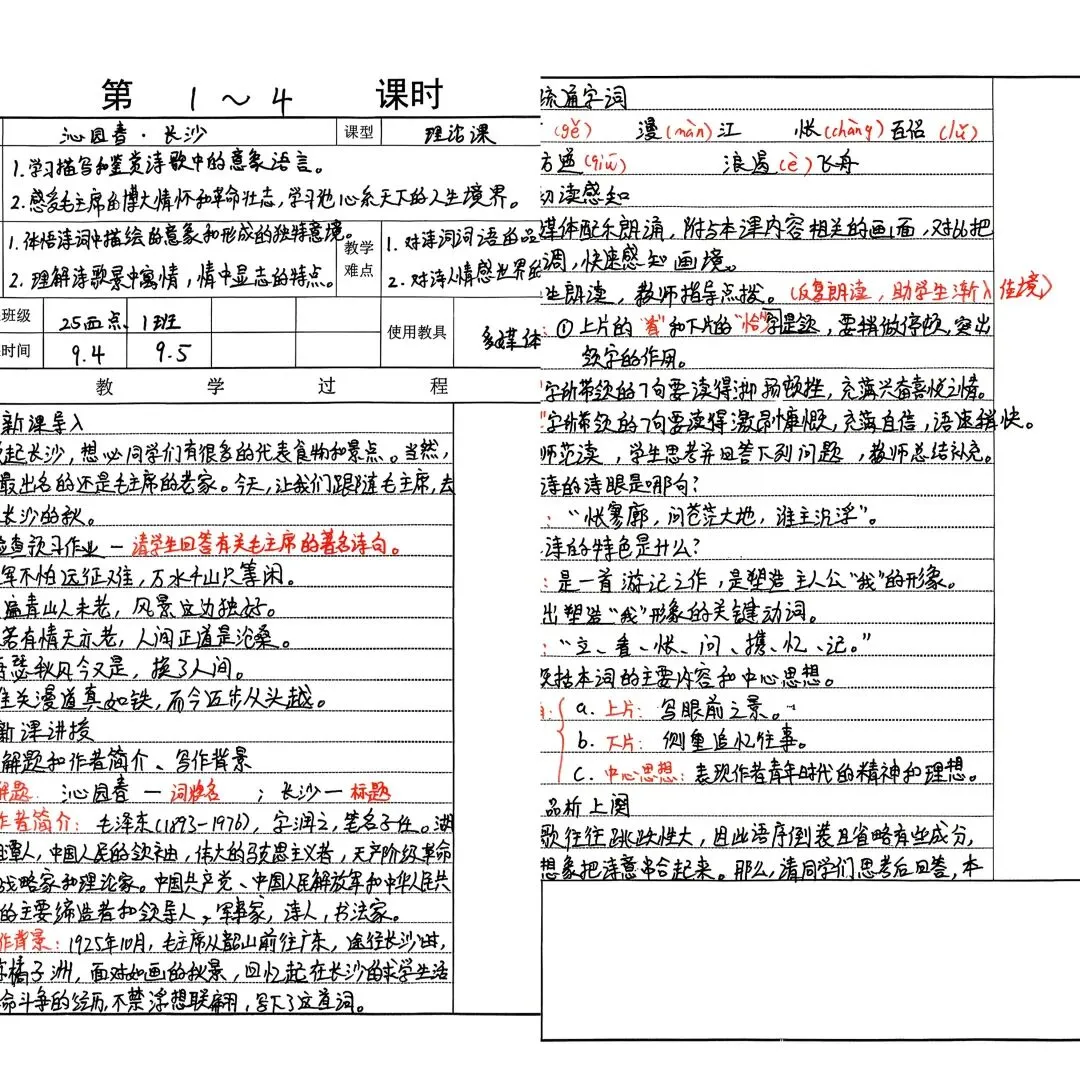 第 1～4 课时
沁园春·长沙 课型 理论课
1.学习描写和鉴赏诗歌中的意象语言。
2.感受毛主席的博大情怀和革命壮志，学习他心系天下的人生境界。
1.体悟诗词中描绘的意象和形成的独特意境。 教学难点 1.对诗词词语的品
2.理解诗歌景中寓情，情中显志的特点。 2.对诗人情感世界的
班级 25西点 1班 使用教具 多媒体
时间 9.4 9.5
教 学 过 程
新课导入
起长沙，想必同学们有很多的代表食物和景点。当然，
最出名的还是毛主席的老家。今天，让我们跟随毛主席，去
长沙的秋。
检查预习作业 — 请学生回答有关毛主席的著名诗句。
军不怕远征难，万水千山只等闲。
遍青山人未老，风景这边独好。
若有情天亦老，人间正道是沧桑。
瑟秋风今又是，换了人间。
关漫道真如铁，而今迈步从头越。
新课讲授
解题和作者简介、写作背景
解题：沁园春 — 词牌名 ；长沙 — 标题
作者简介：毛泽东(1893-1976)，字润之，笔名子任。湖
潭人，中国人民的领袖，伟大的马克思主义者，无产阶级革命
战略家和理论家。中国共产党、中国人民解放军和中华人民共
的主要缔造者和领导人，军事家，诗人，书法家。
作背景：1925年10月，毛主席从韶山前往广东，途径长沙时，
橘子洲，面对如画的秋景，回忆起在长沙的求学生活
命斗争的经历，不禁浮想联翩，写下了这首词。
疏通字词
(gě) 漫(màn)江 怅(chàng) 百侣(lǚ)
方遒(qiú) 浪遏(è)飞舟
初读感知
媒体配乐朗诵，附与本课内容相关的画面，对比把
调，快速感知画境。
生朗读，教师指导点拨。(反复朗读，助学生渐入佳境)
：①上片的“看”和下片的“恰”字是领，要稍做停顿，突出
领字的作用。
”字所带领的7句要读得抑扬顿挫，充满兴奋喜悦之情。
”字所带领的7句要读得激昂慷慨，充满自信，语速稍快。
师范读，学生思考并回答下列问题，教师总结补充。
诗的诗眼是哪句？
：“怅寥廓，问苍茫大地，谁主沉浮”。
诗的特色是什么？
：是一首游记之作，是塑造主人公“我”的形象。
出塑造“我”形象的关键动词。
：“立、看、怅、问、携、忆、记。”
括本词的主要内容和中心思想。
a. 上片：写眼前之景。
b. 下片：侧重追忆往事。
c. 中心思想：表现作者青年时代的精神和理想。
品析上阕
歌往往跳跃性大，因此语序倒装且省略有些成分，
想象把诗意串合起来。那么，请同学们思考后回答，本